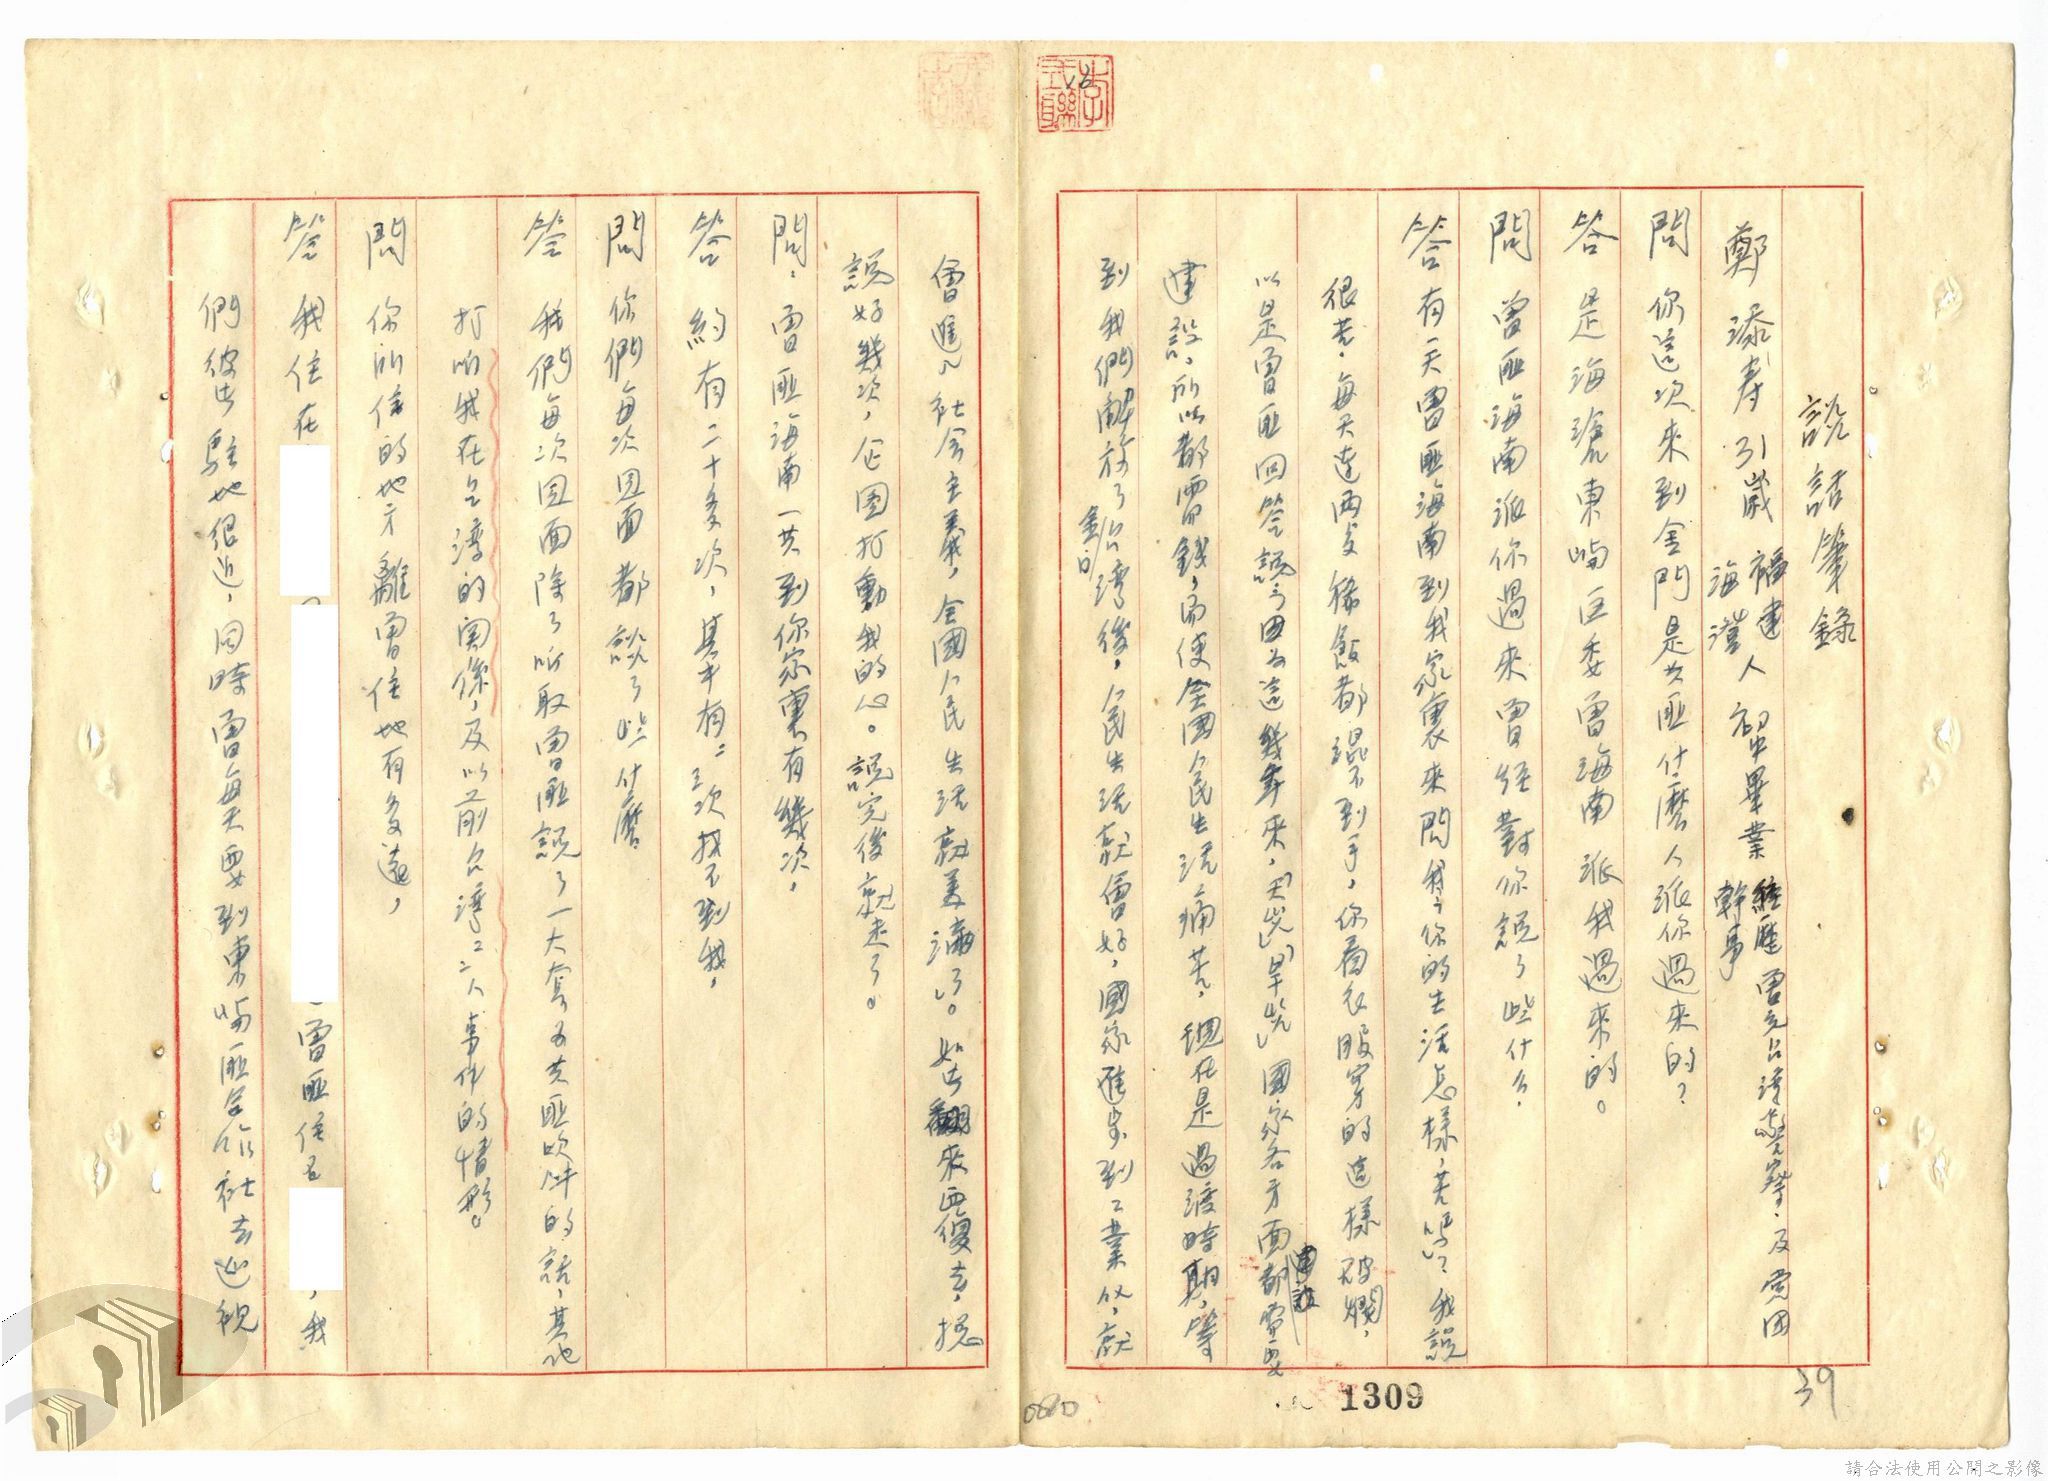 說話筆錄
鄭添壽 31歲 福建海澄人 初中畢業 經歷曾充台灣警察、及黨團幹事
問 你這次來到金門是共匪什麼人派你過來的?
答 是海滄東嶼區委曾海南派我過來的。
問 曾匪海南派你過來曾經對你說了些什么,
答 有一天曾匪海南到我家裏來問我:你的生活怎樣,苦嗎?我說
很苦,每天連兩支稀飯都混不到手,你看衣服穿的這樣破爛,
以是曾匪回答說:因為這幾年來,「天災」「旱災」國家各方面都需要建設
建設,所以都需錢,而使全國人民生活痛苦,現在是過渡時期,等
到我們解放了台灣後,人民生活就會好,國家進步到工業化,就
會進入社會主義,全國人民生活就美滿了。如此翻來覆去,總
說好幾次,企圖打動我的心。說完後就走了。
問、曾匪海南一共到你家裏有幾次,
答 約有二十多次,其中有二三次找不到我,
問 你們每次見面都談了些什麼
答 我們每次見面除了听取曾匪說了一大套為共匪吹牛的話,其他
打听我在台灣的關係,及以前台灣二二八事件的情形。
問 你所住的地方離曾住地有多遠,
答 我住在 曾匪住在 ,我
們彼此駐地很近,同時曾每天要到東嶼匪合作社去巡視
1309
39
請合法使用公開之影像